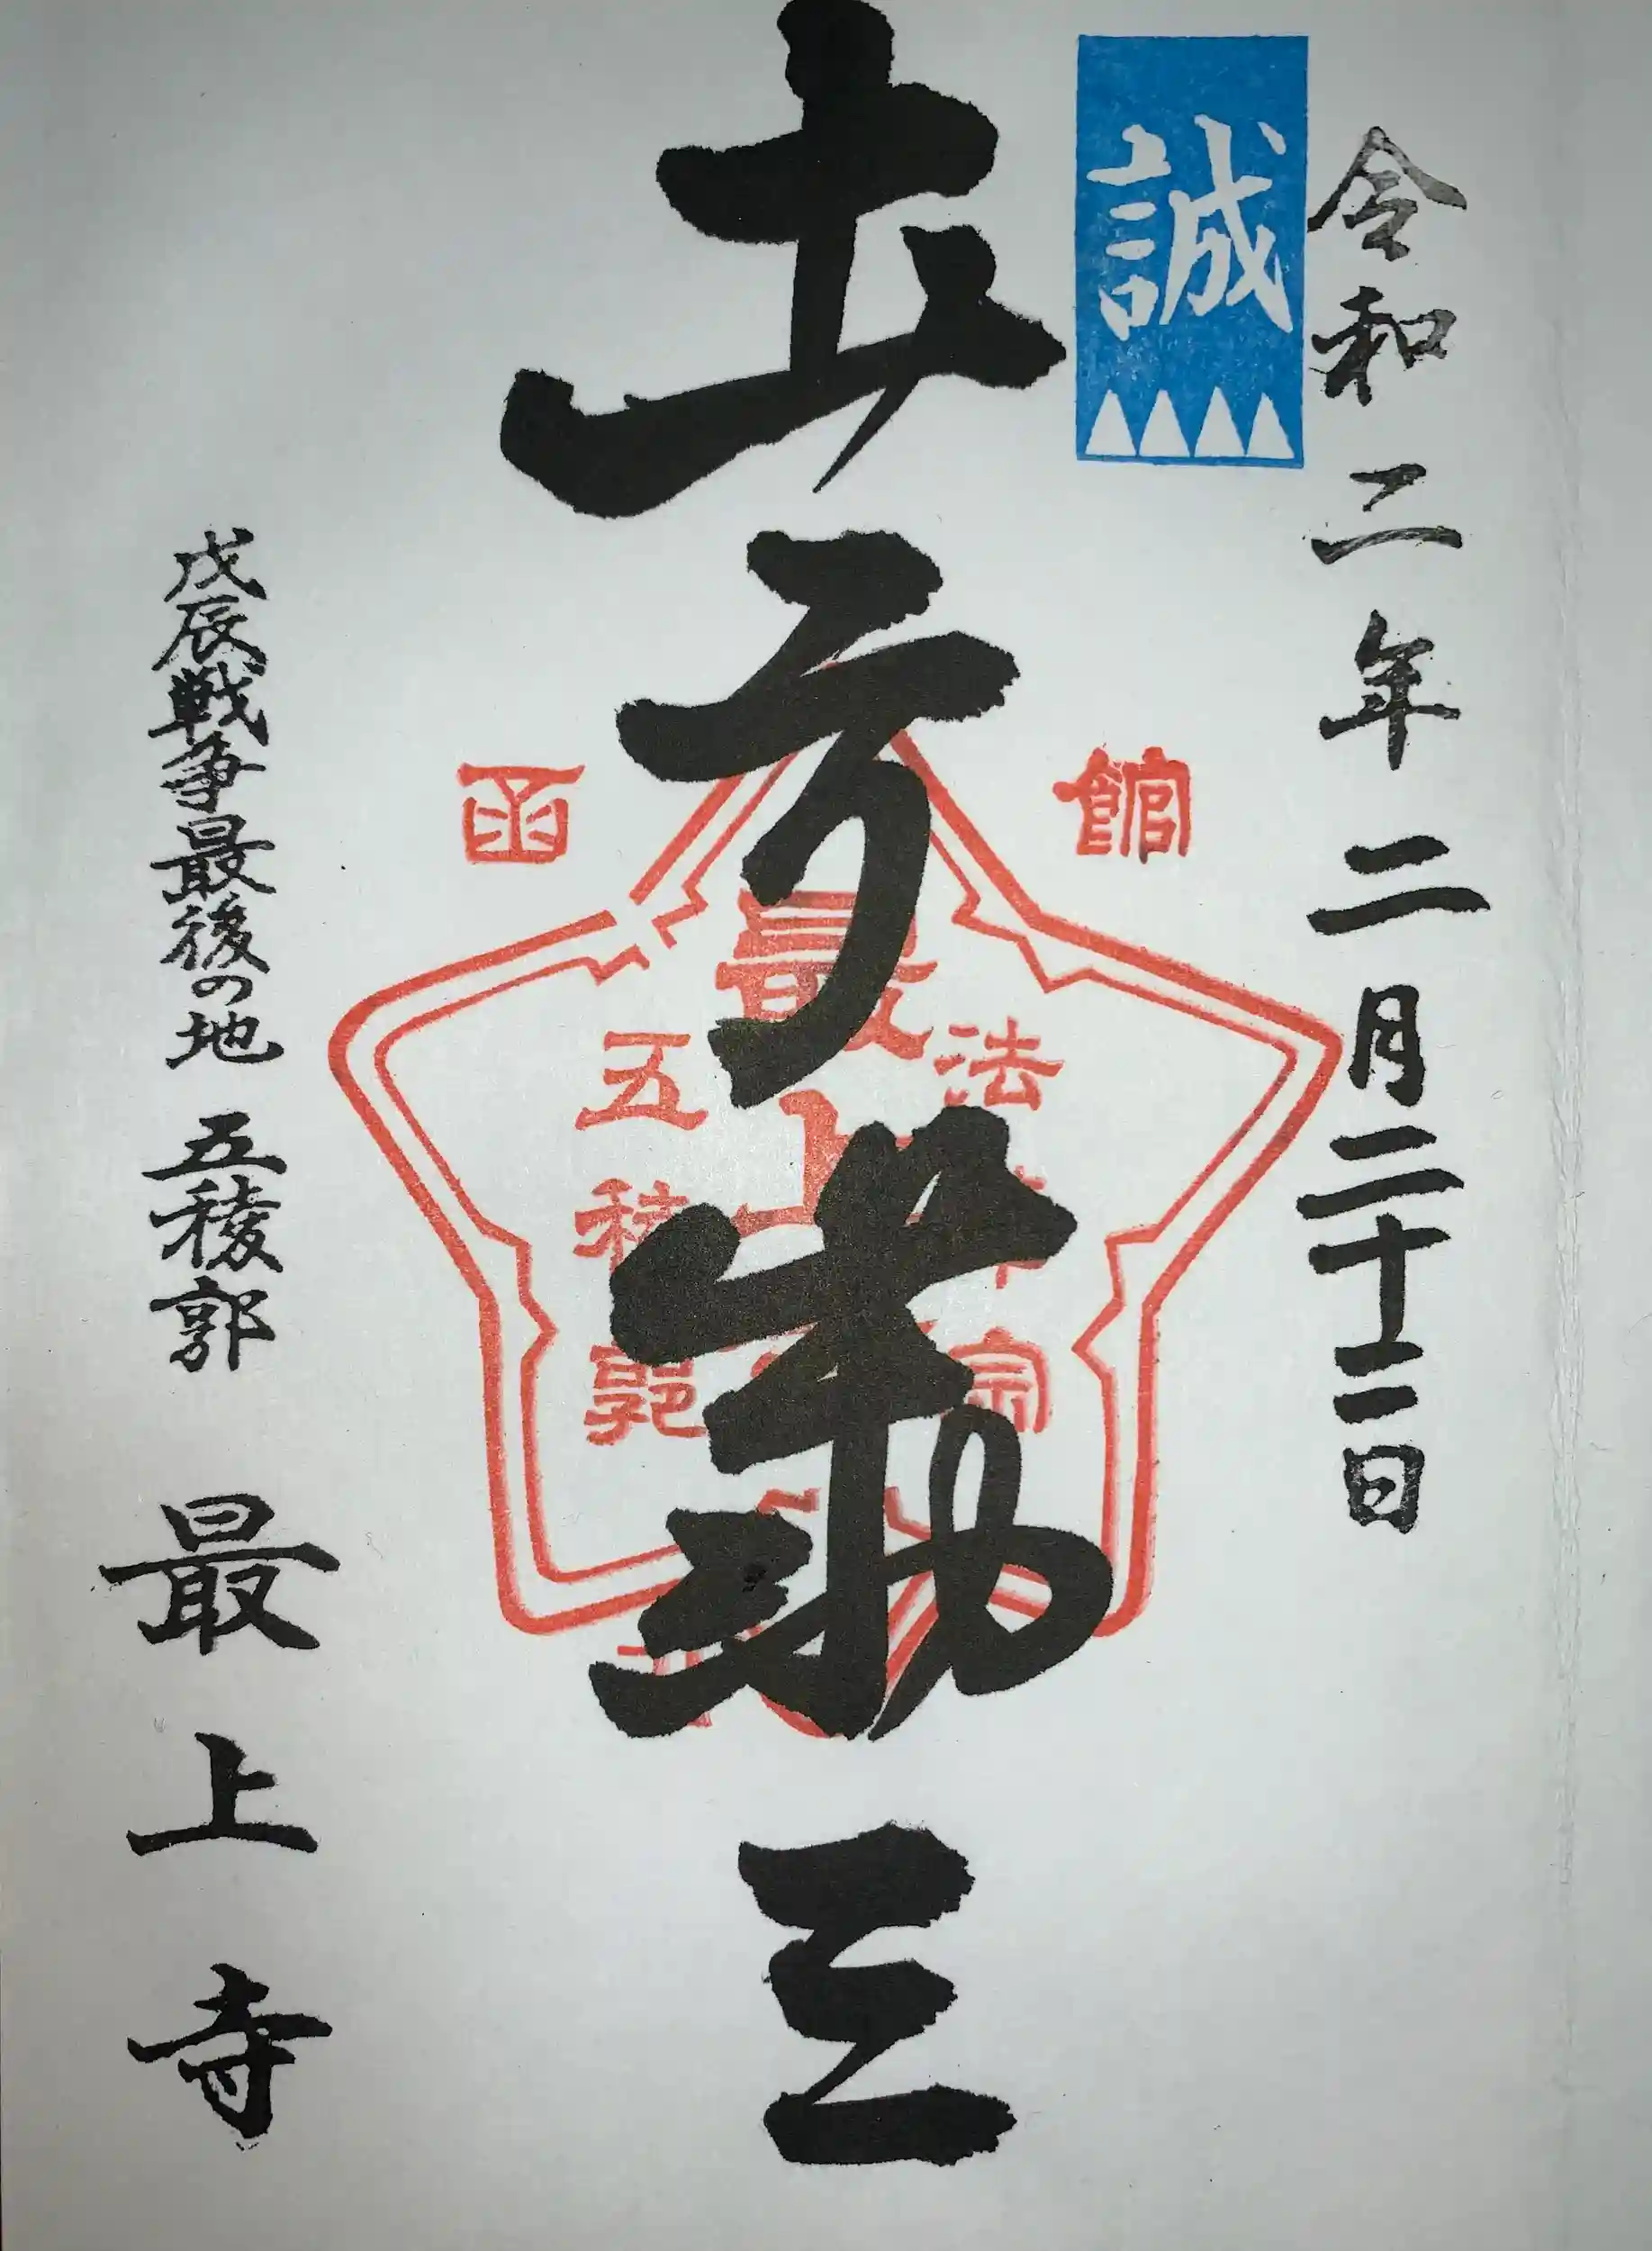 令和二年二月二十二日
誠
土方歳三
函館
法 宗
最上
五稜郭
戊辰戦争最後の地 五稜郭 最上寺